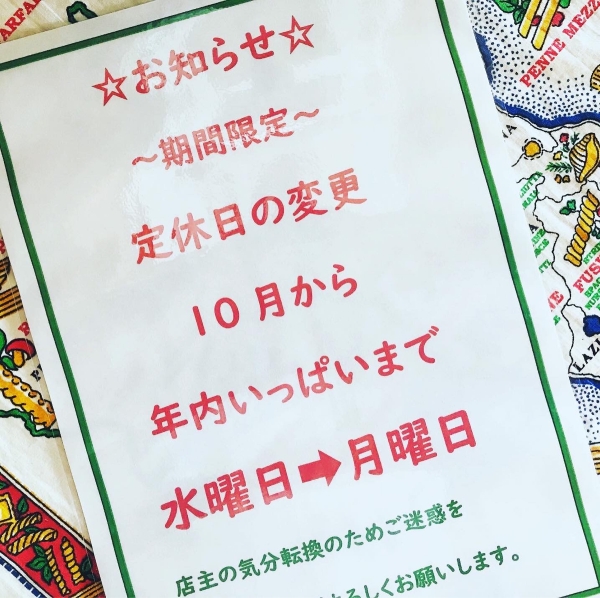 ☆お知らせ☆
～期間限定～
定休日の変更
10月から
年内いっぱいまで
水曜日➡月曜日
店主の気分転換のためご迷惑を
よろしくお願いします。
PENNE MEZZ